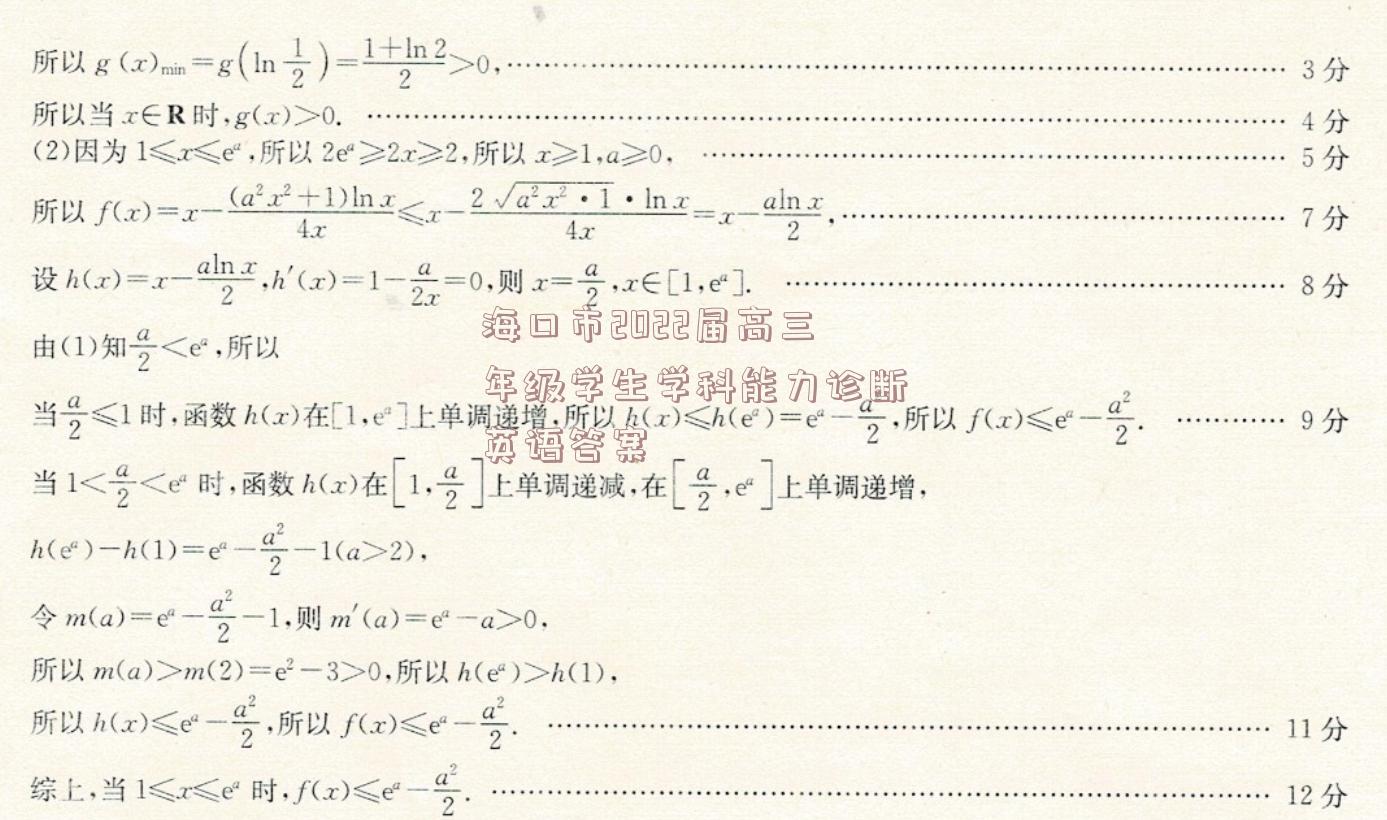 所以 g(x)min=g(ln 1/2)=(1+ln 2)/2>0,…… 3分
所以当 x∈R 时,g(x)>0. …… 4分
(2)因为 1≤x≤e^a,所以 2e^a≥2x≥2,所以 x≥1,a≥0, …… 5分
所以 f(x)=x-((a²x²+1)ln x)/(4x)≤x-(2√(a²x²·1)·ln x)/(4x)=x-(aln x)/2,…… 7分
设 h(x)=x-(aln x)/2,h′(x)=1-a/(2x)=0,则 x=a/2,x∈[1,e^a]. …… 8分
海口市2022届高三
由(1)知 a/2<e^a,所以
年级学生学科能力诊断
当 a/2≤1 时,函数 h(x)在[1,e^a]上单调递增,所以 h(x)≤h(e^a)=e^a-a²/2,所以 f(x)≤e^a-a²/2. …… 9分
英语答案
当 1<a/2<e^a 时,函数 h(x)在[1,a/2]上单调递减,在[a/2,e^a]上单调递增,
h(e^a)-h(1)=e^a-a²/2-1(a>2),
令 m(a)=e^a-a²/2-1,则 m′(a)=e^a-a>0,
所以 m(a)>m(2)=e²-3>0,所以 h(e^a)>h(1),
所以 h(x)≤e^a-a²/2,所以 f(x)≤e^a-a²/2. …… 11分
综上,当 1≤x≤e^a 时,f(x)≤e^a-a²/2. …… 12分